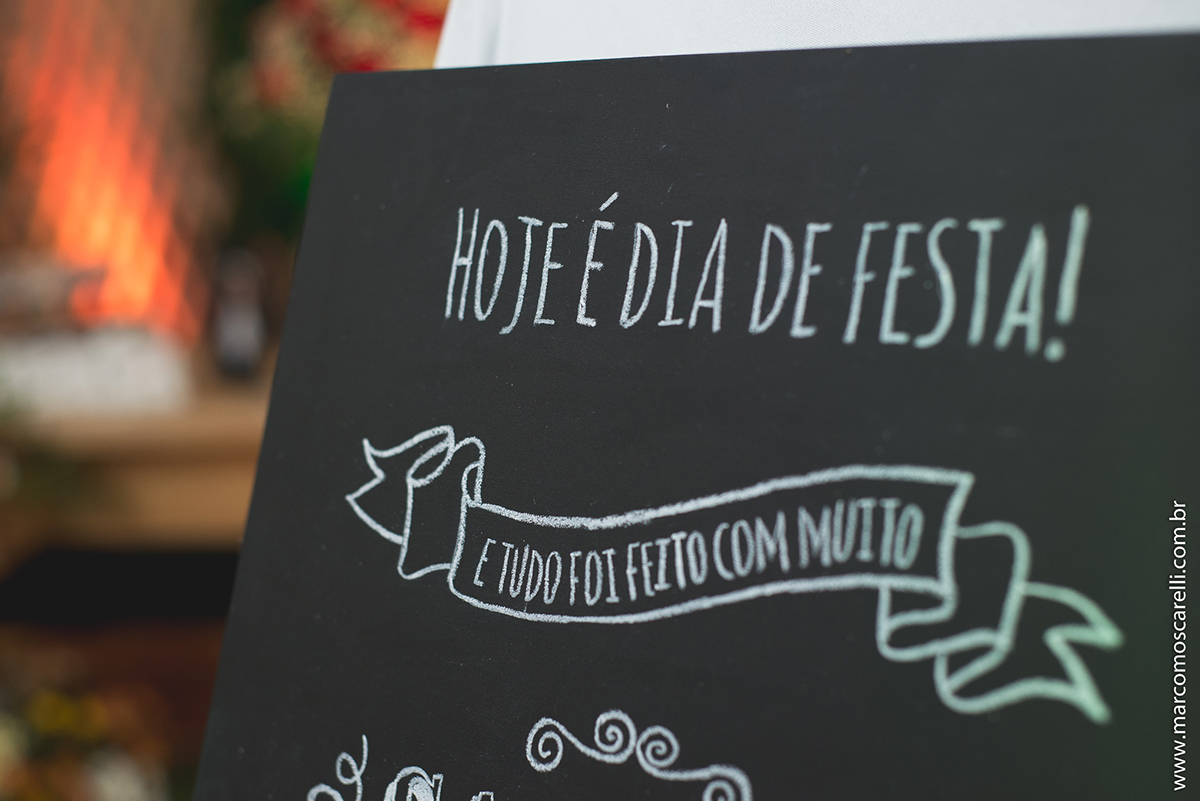 HOJE É DIA DE FESTA!
E TUDO FOI FEITO COM MUITO
www.marcomoscarelli.com.br